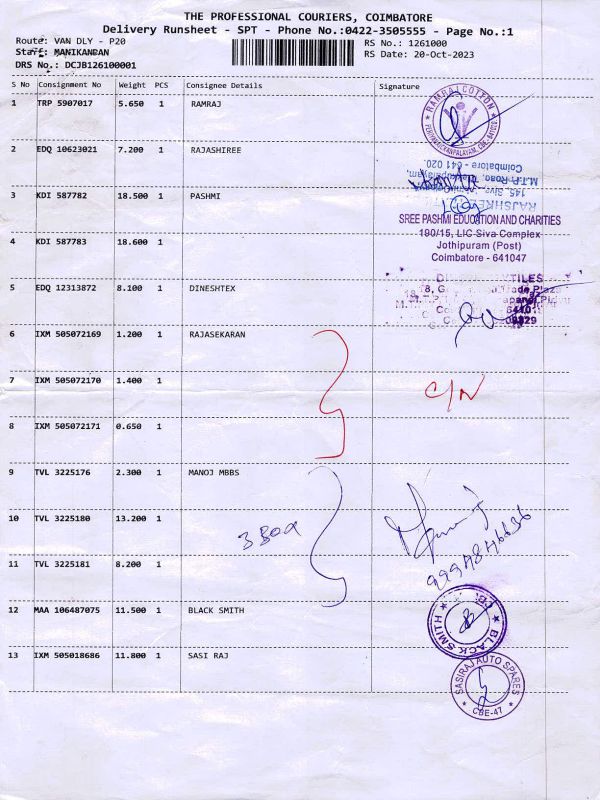 THE PROFESSIONAL COURIERS, COIMBATORE
Delivery Runsheet - SPT - Phone No.:0422-3505555 - Page No.:1
Route: VAN DLY - P20
RS No.: 1261000
Staff: MANIKANDAN
RS Date: 20-Oct-2023
DRS No.: DCJB126100001
S No Consignment No Weight PCS Consignee Details Signature
1 TRP 5907017 5.650 1 RAMRAJ
RAMRAJ COTTON
2 EDQ 10623021 7.200 1 RAJASHIREE
Coimbatore - 641 020.
M.T.P. Road,
145, Siva
RAJSHREE
3 KDI 587782 18.500 1 PASHMI
SREE PASHMI EDUCATION AND CHARITIES
190/15, LIC Siva Complex
Jothipuram (Post)
Coimbatore - 641047
4 KDI 587783 18.600 1
5 EDQ 12313872 8.100 1 DINESHTEX
6 IXM 505072169 1.200 1 RAJASEKARAN
7 IXM 505072170 1.400 1
C/N
8 IXM 505072171 0.650 1
9 TVL 3225176 2.300 1 MANOJ MBBS
10 TVL 3225180 13.200 1
3 Box
11 TVL 3225181 8.200 1
12 MAA 106487075 11.500 1 BLACK SMITH
BLACK SMITH
13 IXM 505018686 11.800 1 SASI RAJ
SASIRAJ AUTO SPARES
CBE-47